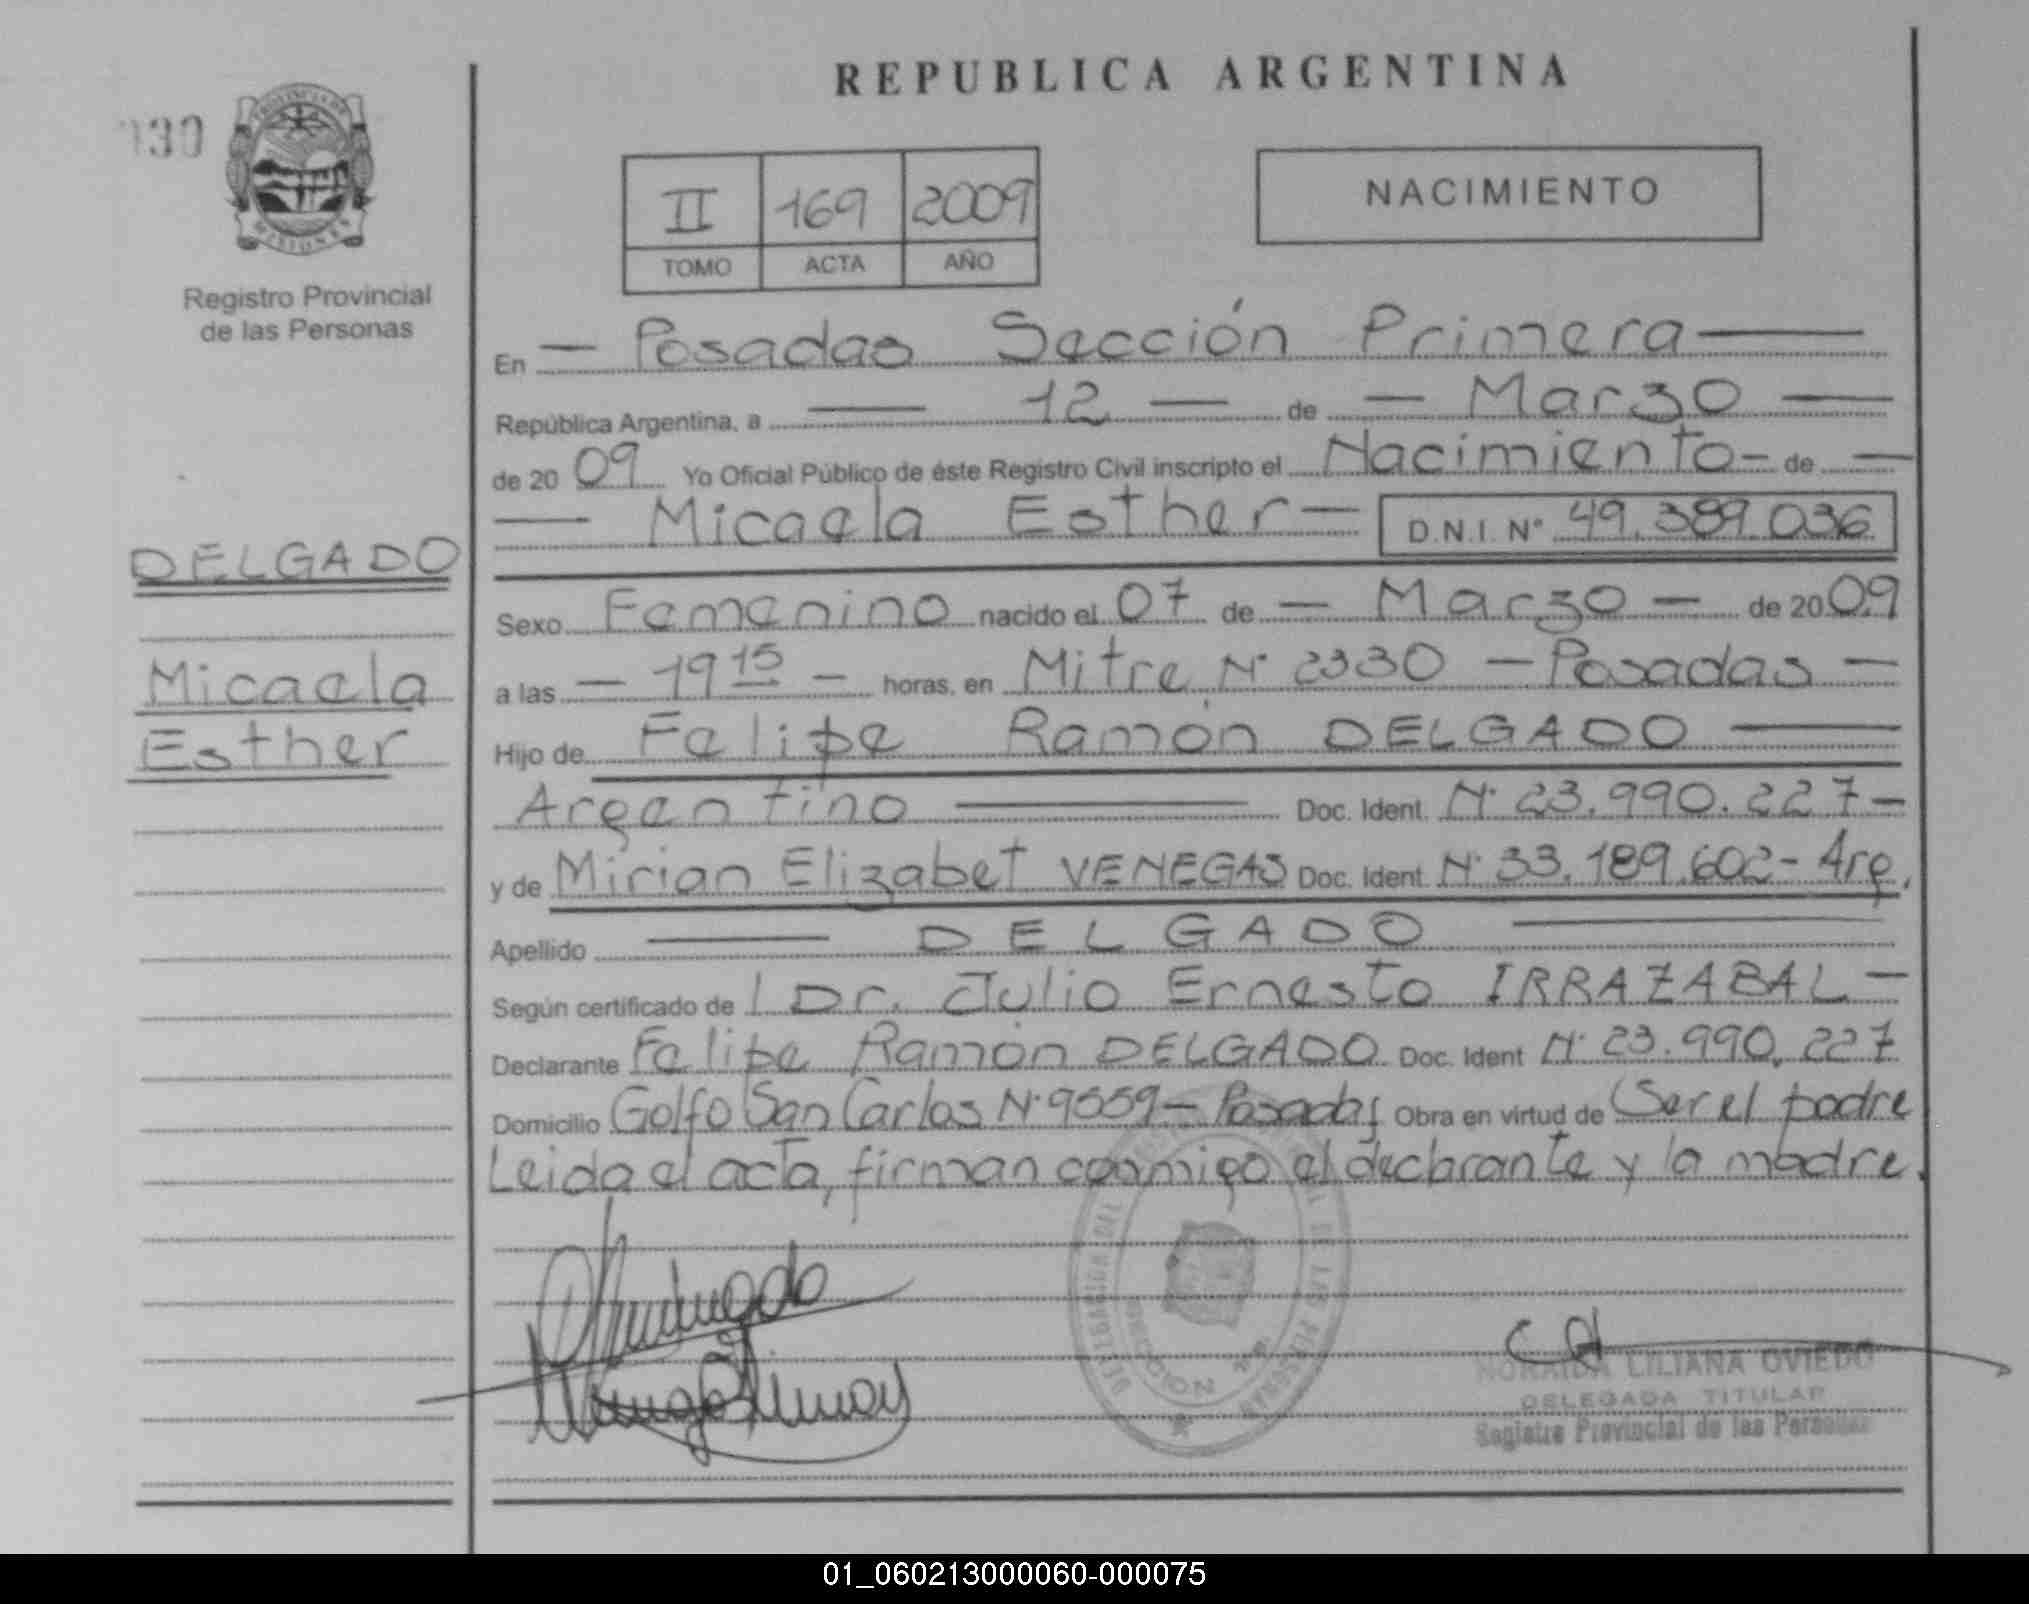 REPUBLICA ARGENTINA
130
PROVINCIA DE
MISIONES
Registro Provincial
de las Personas
II 169 2009
TOMO ACTA AÑO
NACIMIENTO
En — Posadas Sección Primera —
República Argentina, a — 12 — de — Marzo —
de 20 09 Yo Oficial Público de éste Registro Civil inscripto el Nacimiento - de —
— Micaela Esther — D.N.I. Nº 49.389.036
DELGADO
Micaela
Esther
Sexo Femenino nacido el 07 de — Marzo — de 20 09
a las — 19 15 — horas, en Mitre Nº 2330 — Posadas —
Hijo de Felipe Ramón DELGADO —
Argentino — Doc. Ident. Nº 23.990.227 —
y de Mirian Elizabet VENEGAS Doc. Ident. Nº 33.189.602 - Arg.
Apellido — DELGADO —
Según certificado de l Dr. Julio Ernesto IRRAZABAL —
Declarante Felipe Ramón DELGADO Doc. Ident Nº 23.990.227
Domicilio Golfo San Carlos Nº 9559 — Posadas Obra en virtud de Ser el padre
Leida el acta, firman conmigo el declarante y la madre.
DELEGACION DEL REGISTRO PROVINCIAL DE LAS PERSONAS
NORAIDA LILIANA OVIEDO
DELEGADA TITULAR
Registro Provincial de las Personas
01_060213000060-000075